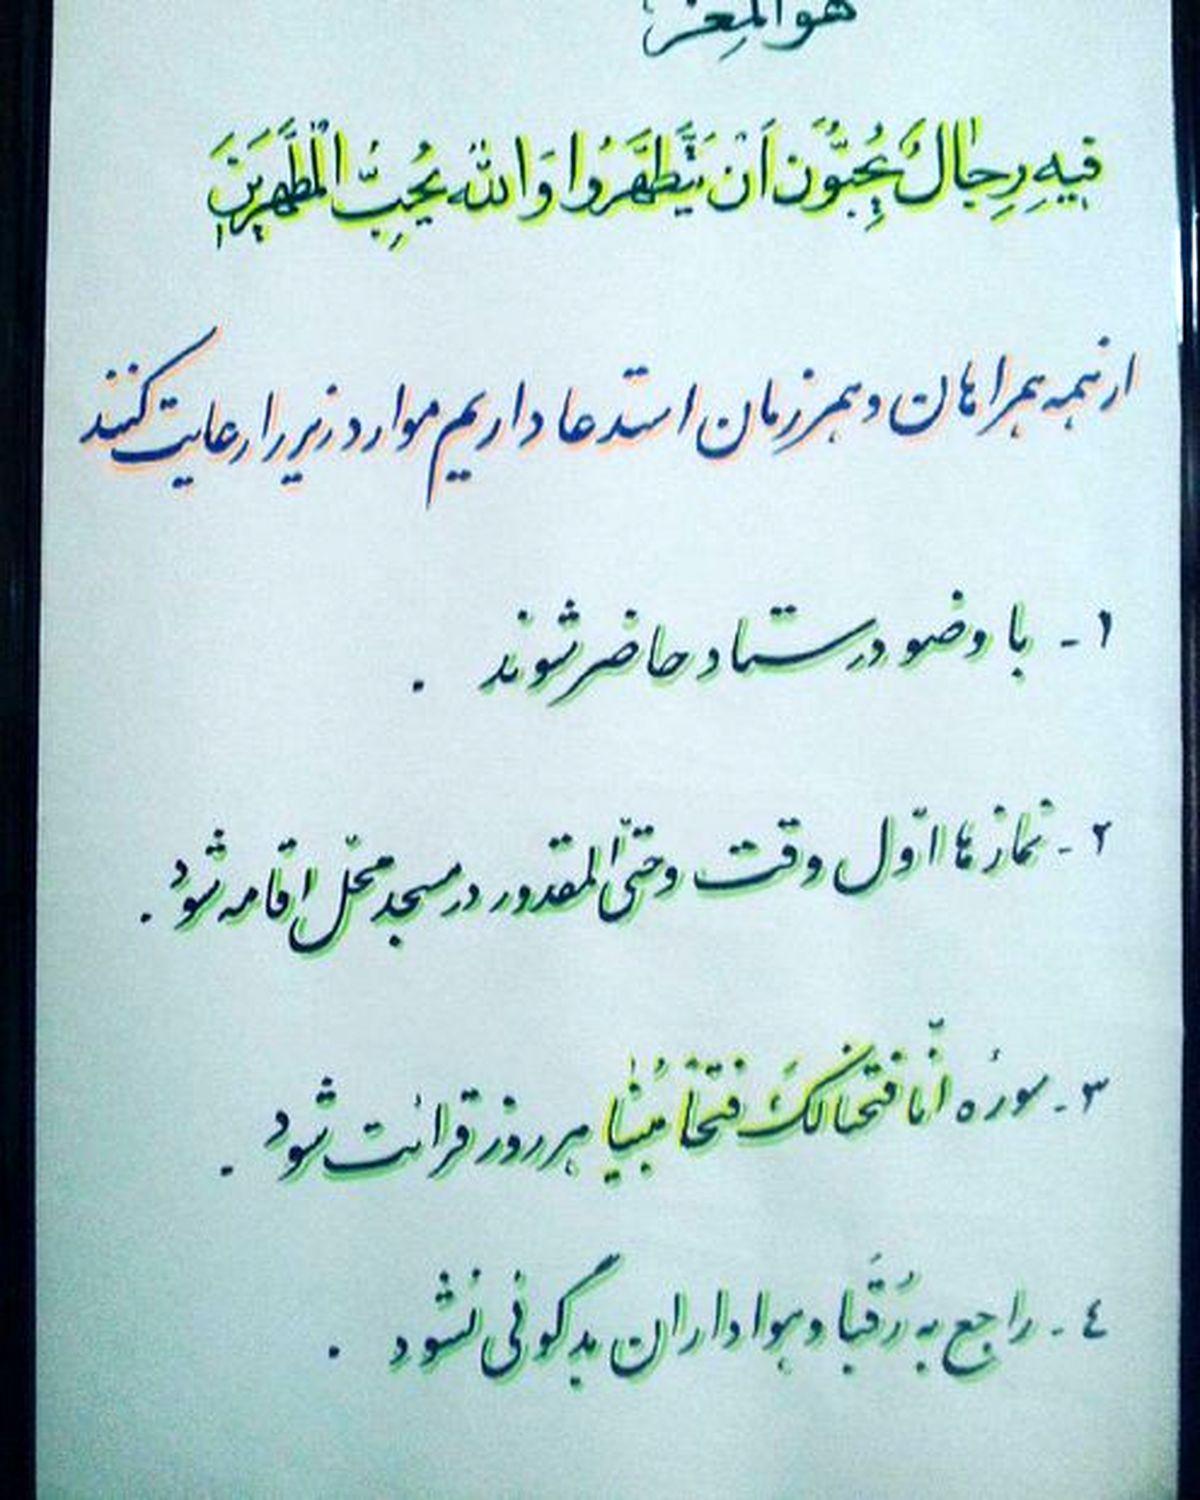 هوالمعز
فیهِ رِجٰالٌ یُحِبُّونَ اَنْ یَتَطَهَّرُوا وَاللهُ یُحِبُّ الْمُطَّهَرِینَ
از همه همراهان و همرزمان استدعا داریم موارد زیر را رعایت کنند
۱- با وضو در ستاد حاضر شوند .
۲- نمازها اوّل وقت و حتّی المقدور در مسجد محّل اقامه شود .
۳- سورُه انّا فتحنا لکَ فتحاً مُبیناً هر روز قرائت شود .
٤- راجع به رُقَبا و هواداران بدگوئی نشود .